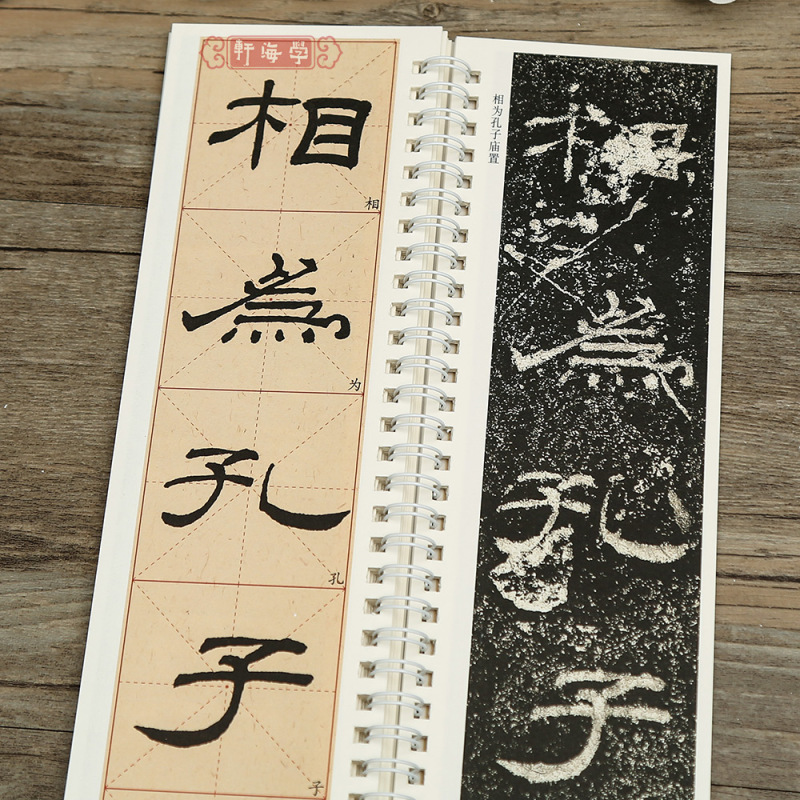 軒海學
相
相
為
为
孔
孔
子
子
相为孔子庙置
相
為
孔
子